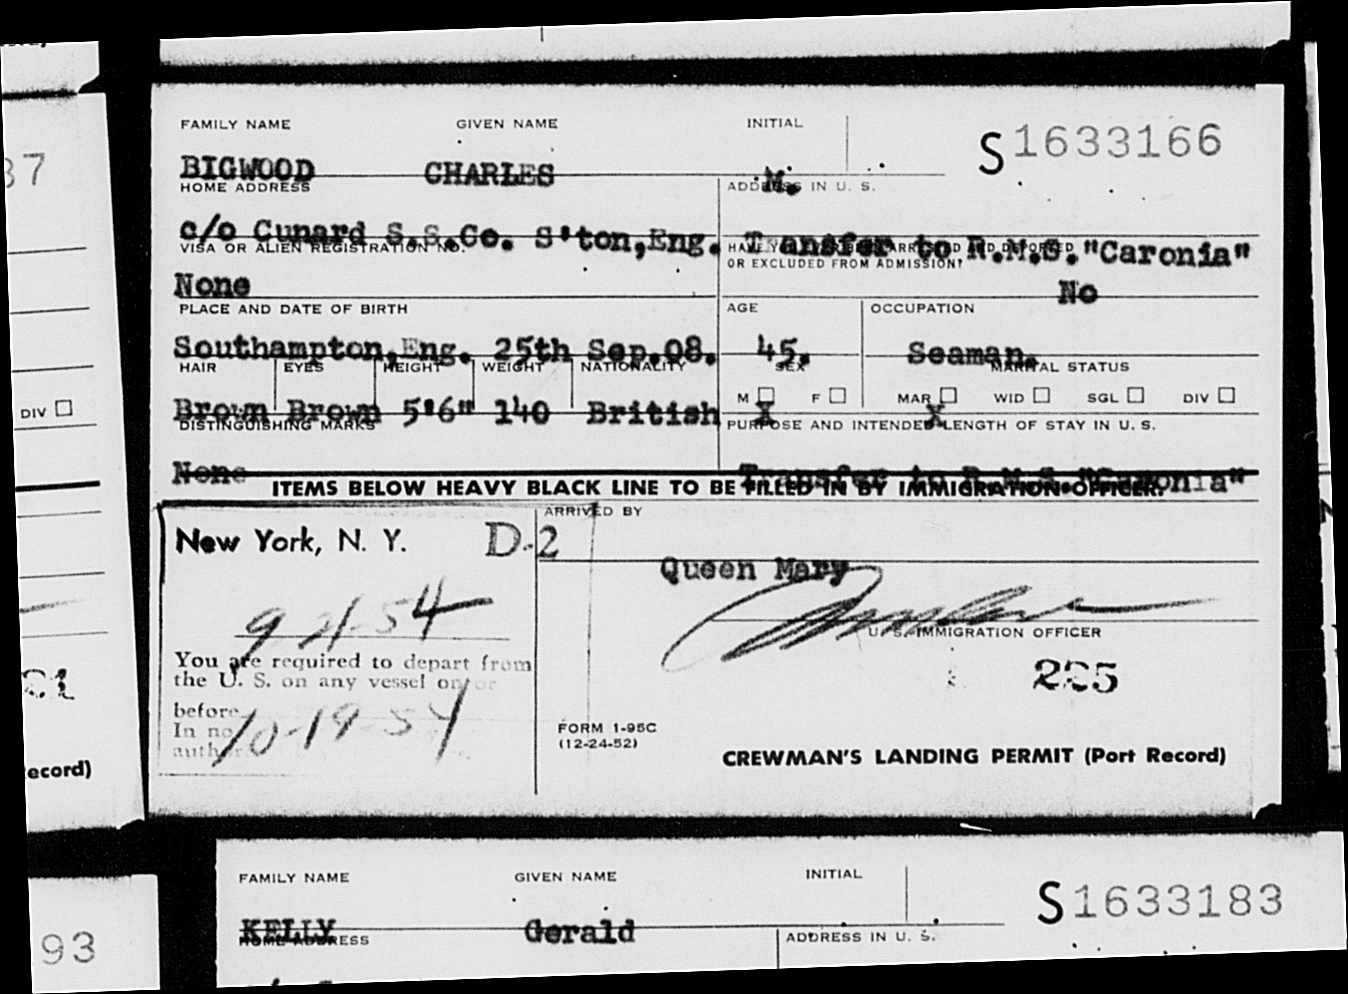 37
DIV
ecord)
93
FAMILY NAME GIVEN NAME INITIAL
S 1633166
BIGWOOD CHARLES M.
HOME ADDRESS ADDRESS IN U. S.
c/o Cunard S.S.Co. S'ton,Eng. Transfer to R.M.S."Caronia"
VISA OR ALIEN REGISTRATION NO.
OR EXCLUDED FROM ADMISSION?
None No
PLACE AND DATE OF BIRTH AGE OCCUPATION
Southampton,Eng. 25th Sep.08. 45. Seaman.
HAIR EYES HEIGHT WEIGHT NATIONALITY SEX MARITAL STATUS
M F MAR WID SGL DIV
Brown Brown 5'6" 140 British X X
DISTINGUISHING MARKS PURPOSE AND INTENDED LENGTH OF STAY IN U. S.
None Transfer to R.M.S."Caronia"
ITEMS BELOW HEAVY BLACK LINE TO BE FILLED IN BY IMMIGRATION OFFICER.
ARRIVED BY
New York, N. Y. D-2
Queen Mary
9-21-54
U. S. IMMIGRATION OFFICER
You are required to depart from
the U. S. on any vessel on or
before
In no
10-19-54
225
FORM 1-95C
(12-24-52)
CREWMAN'S LANDING PERMIT (Port Record)
FAMILY NAME GIVEN NAME INITIAL
S 1633183
KELLY Gerald
HOME ADDRESS ADDRESS IN U. S.